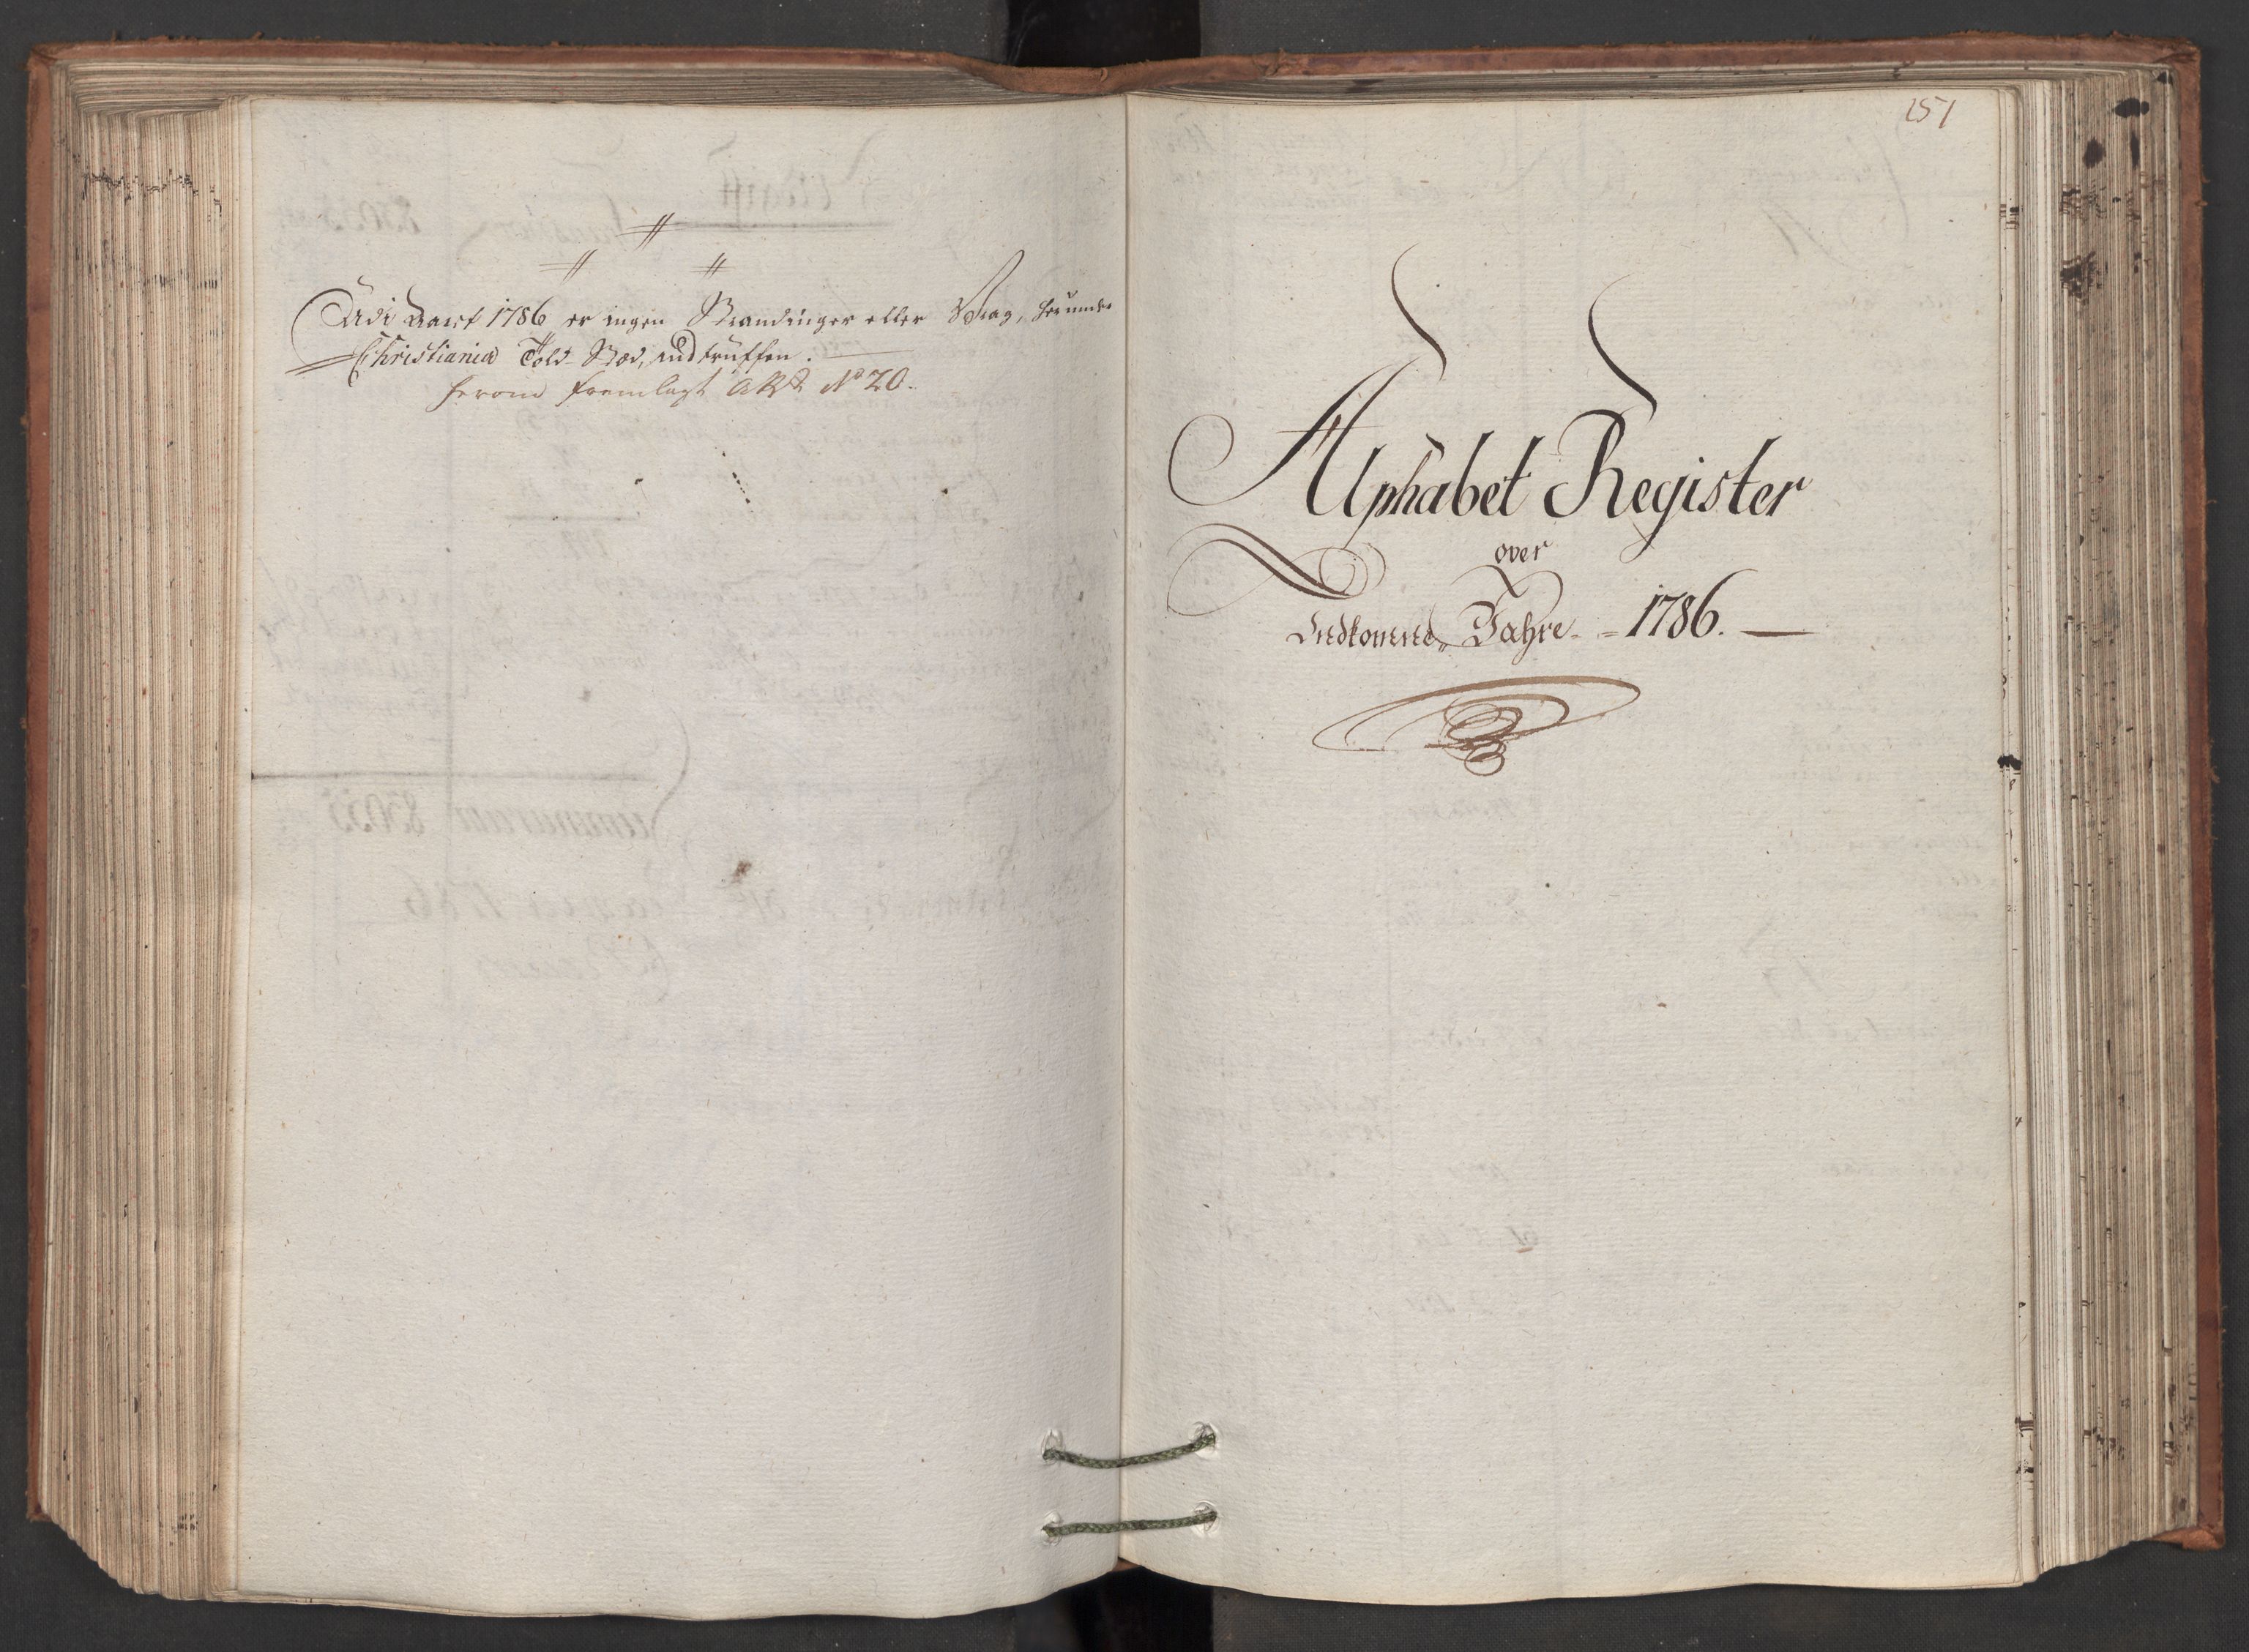 Udi Aaret 1786 er ingen Strandinger eller Vrag, herunder
Christiania Told-Sted, indtruffen.
herom fremlagt Att No 20.
251
Alphabet Register
over
Indkomne Fahre - 1786.